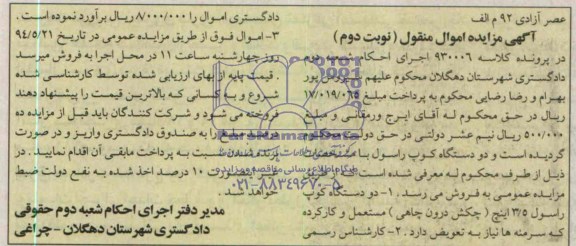 عصر آزادی ۹۲ م الف
آگهی مزایده اموال منقول ( نوبت دوم )
در پرونده کلاسه ۹۳۰۰۰۶ اجرای احکام شعبه دوم
دادگستری شهرستان دهگلان محکوم علیهم پور
بهرام و رضا رضایی محکوم به پرداخت مبلغ ۱۷/۰۱۹/۰۶۵
ریال در حق محکوم له آقای ایرج ورمقانی و مبلغ
۵۰۰/۰۰۰ ریال نیم عشر دولتی در حق دولت محکوم
گردیده است و دو دستگاه کوپ راسول با مشخصات
ذیل از طرف محکوم له معرفی شده است که از طریق
مزایده عمومی به فروش می رسد . ۱- دو دستگاه کوپ
راسول ۳/۵ اینچ ( چکش درون چاهی ) مستعمل و کارکرده
که سرمته ها نیاز به تعویض دارد . ۲- کارشناس رسمی
دادگستری اموال را ۸/۰۰۰/۰۰۰ ریال برآورد نموده است .
۳- اموال فوق از طریق مزایده عمومی در تاریخ ۹۴/۵/۲۱
روز چهارشنبه ساعت ۱۱ در محل اجرا به فروش میرسد
. قیمت پایه از بهای ارزیابی شده توسط کارشناسی شده
شروع و به کسانی که بالاترین قیمت را پیشنهاد دهند
فروخته می شود و شرکت کنندگان باید قبل از مزایده ده
را به صندوق دادگستری واریز و در صورت
برنده شدن نسبت به پرداخت مابقی آن اقدام نمایید . در
۱۰ درصد اخذ شده به نفع دولت ضبط
خواهد شد .
مدیر دفتر اجرای احکام شعبه دوم حقوقی
دادگستری شهرستان دهگلان - چراغی
ParsNamadData
پایگاه اطلاع رسانی مناقصه و مزایده
۰۲۱-۸۸۳۴۹۶۷۰-۵